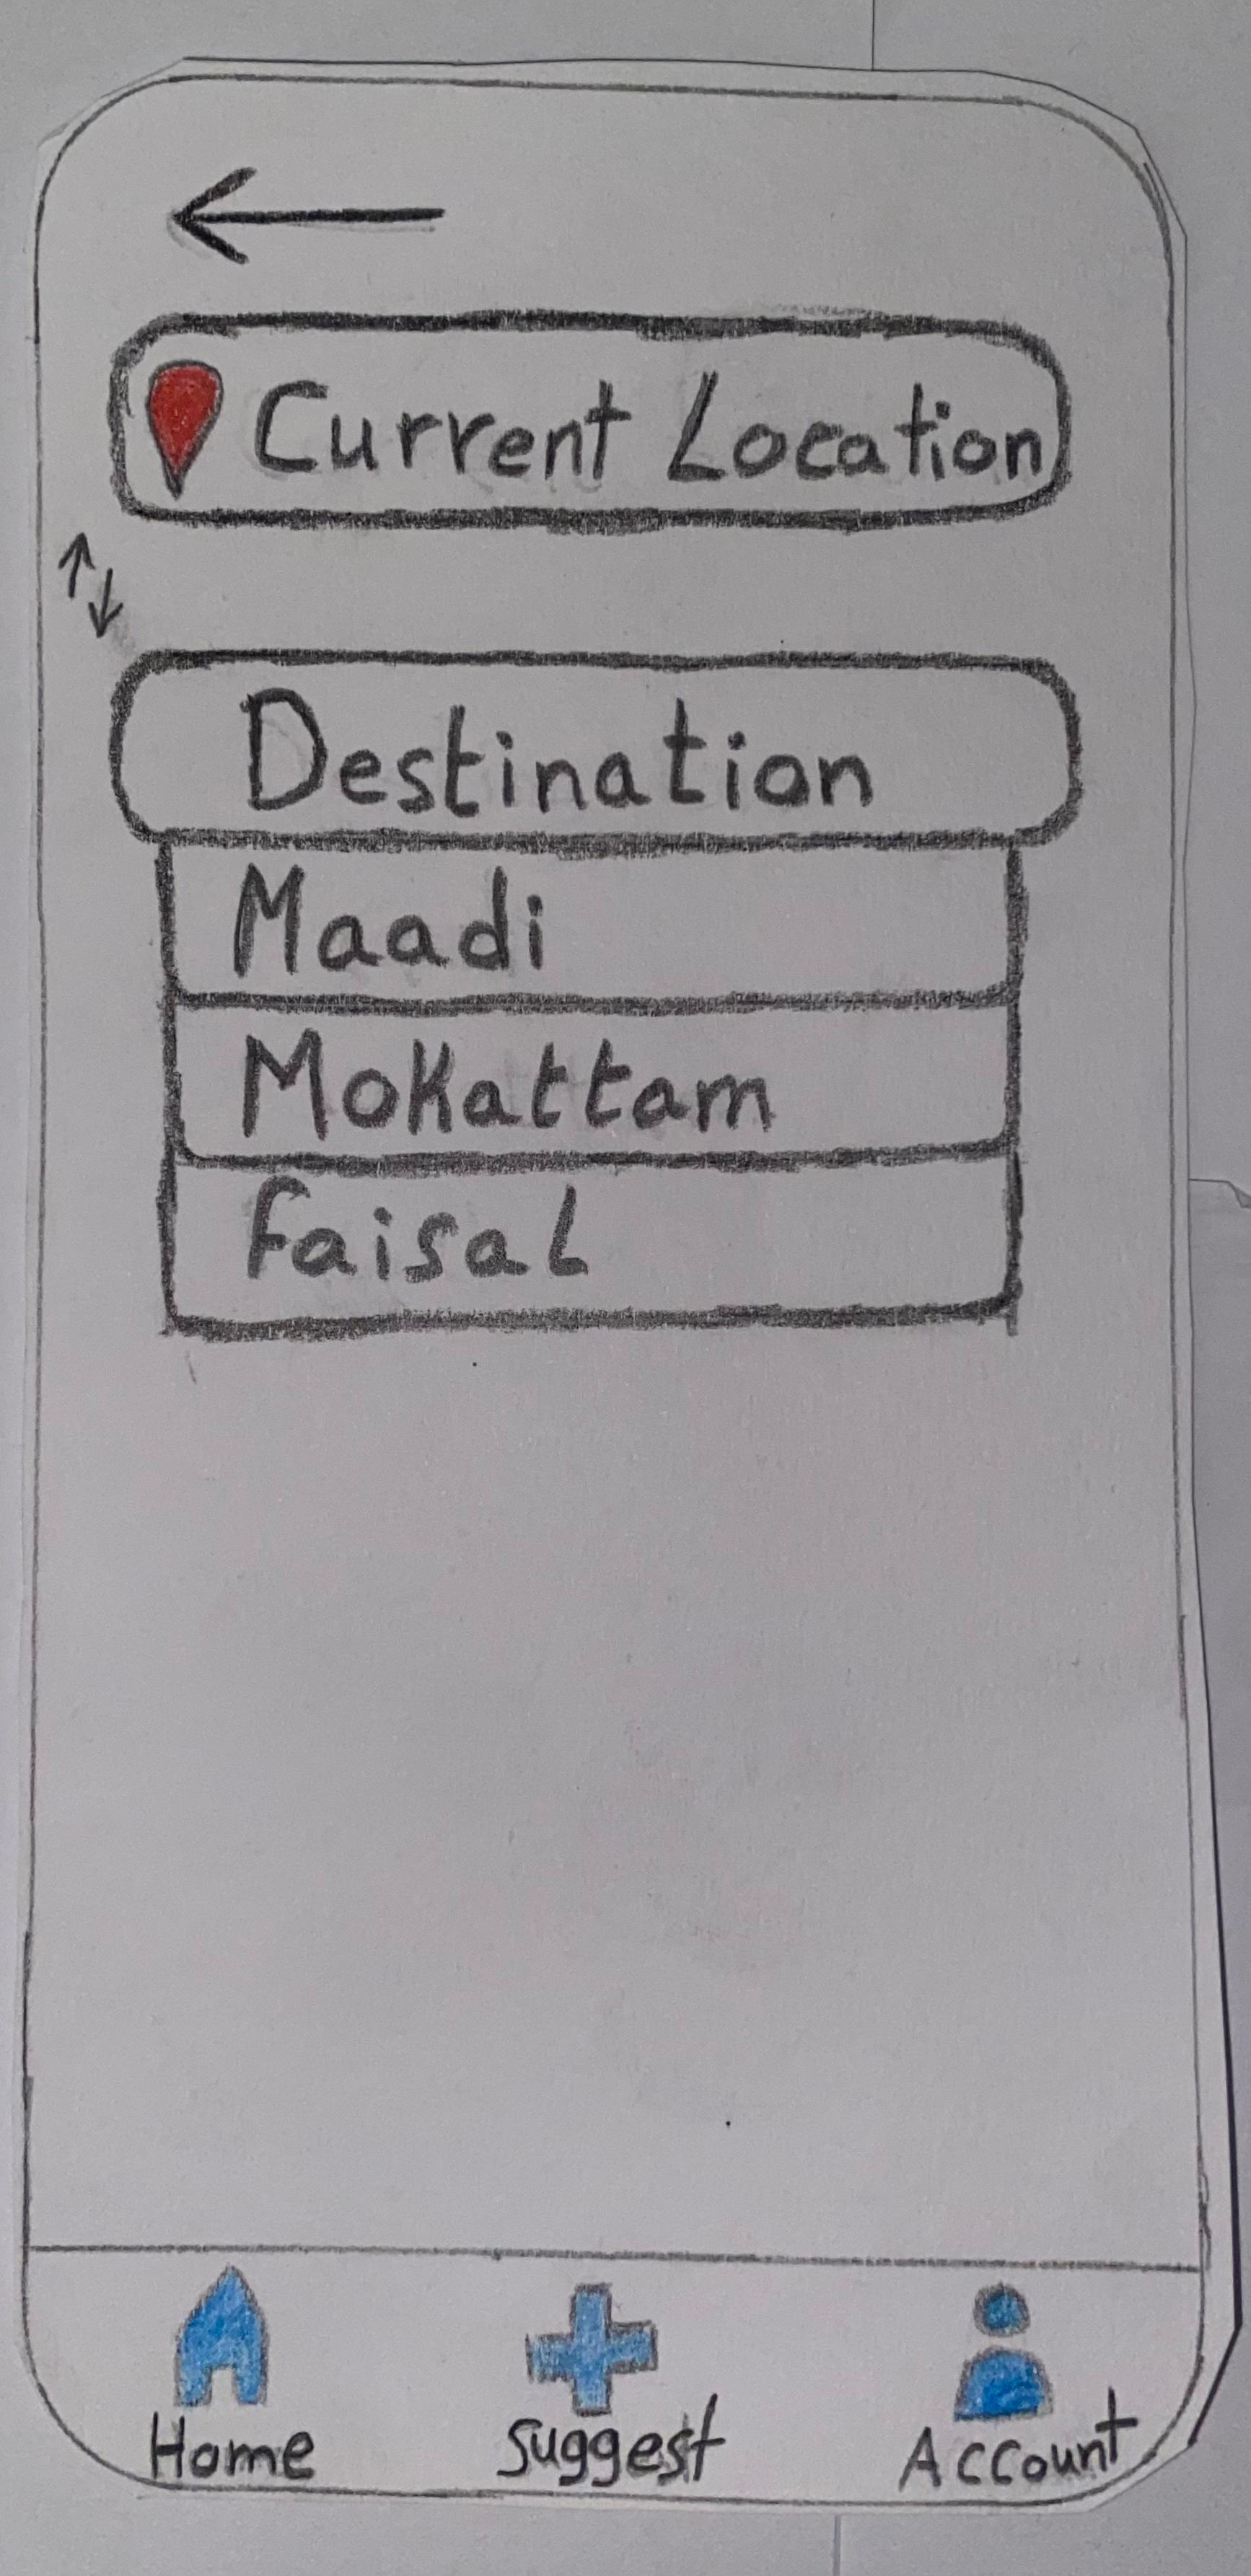 Current Location
Destination
Maadi
Mokattam
Faisal
Home
Suggest
Account